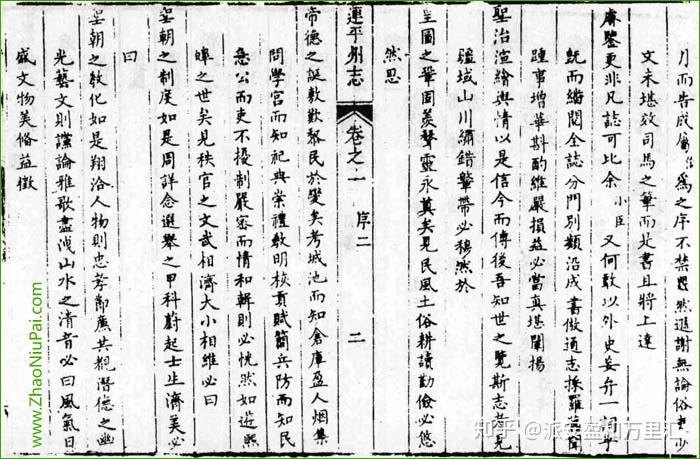 月而告成屬余爲之序不禁愕然遜謝無論俗吏少
文未堪效司馬之筆而茲書且將上達
廟鑒更非凡誌可比余小臣又何敢以外史妄弁一詞乎
既而繙閱全誌分門別類沿成書倣通志採羅舊聞
踵事增華斟酌維嚴損益必當真堪闡揚
聖治渲繪輿情以是信今而傳後吾知世之覽斯志者見
疆域山川繡錯鞶帶必穆然於
皇圖之鞏固羨聲靈永奠矣見民風土俗耕讀勤儉必悠
然思
連平州志
卷之一
序二
二
帝德之誕敷歎黎民於變矣考城池而知倉庫盈人烟集
問學宮而知祀典崇禮教明核貢賦簡兵防而知民
急公而吏不擾制嚴密而情和輯則必恍然如遊熙
皞之世矣見秩官之文武相濟大小相維必曰
皇朝之制度如是周詳念選舉之甲科蔚起士生濟美必
曰
皇朝之教化如是翔洽人物則忠孝節廉共覩潛德之幽
光藝文則讜論雅歌盡洩山水之清音必曰風氣日
盛文物美備益徵
www.ZhaoNiuPai.com
知乎 @派安盈和万里汇